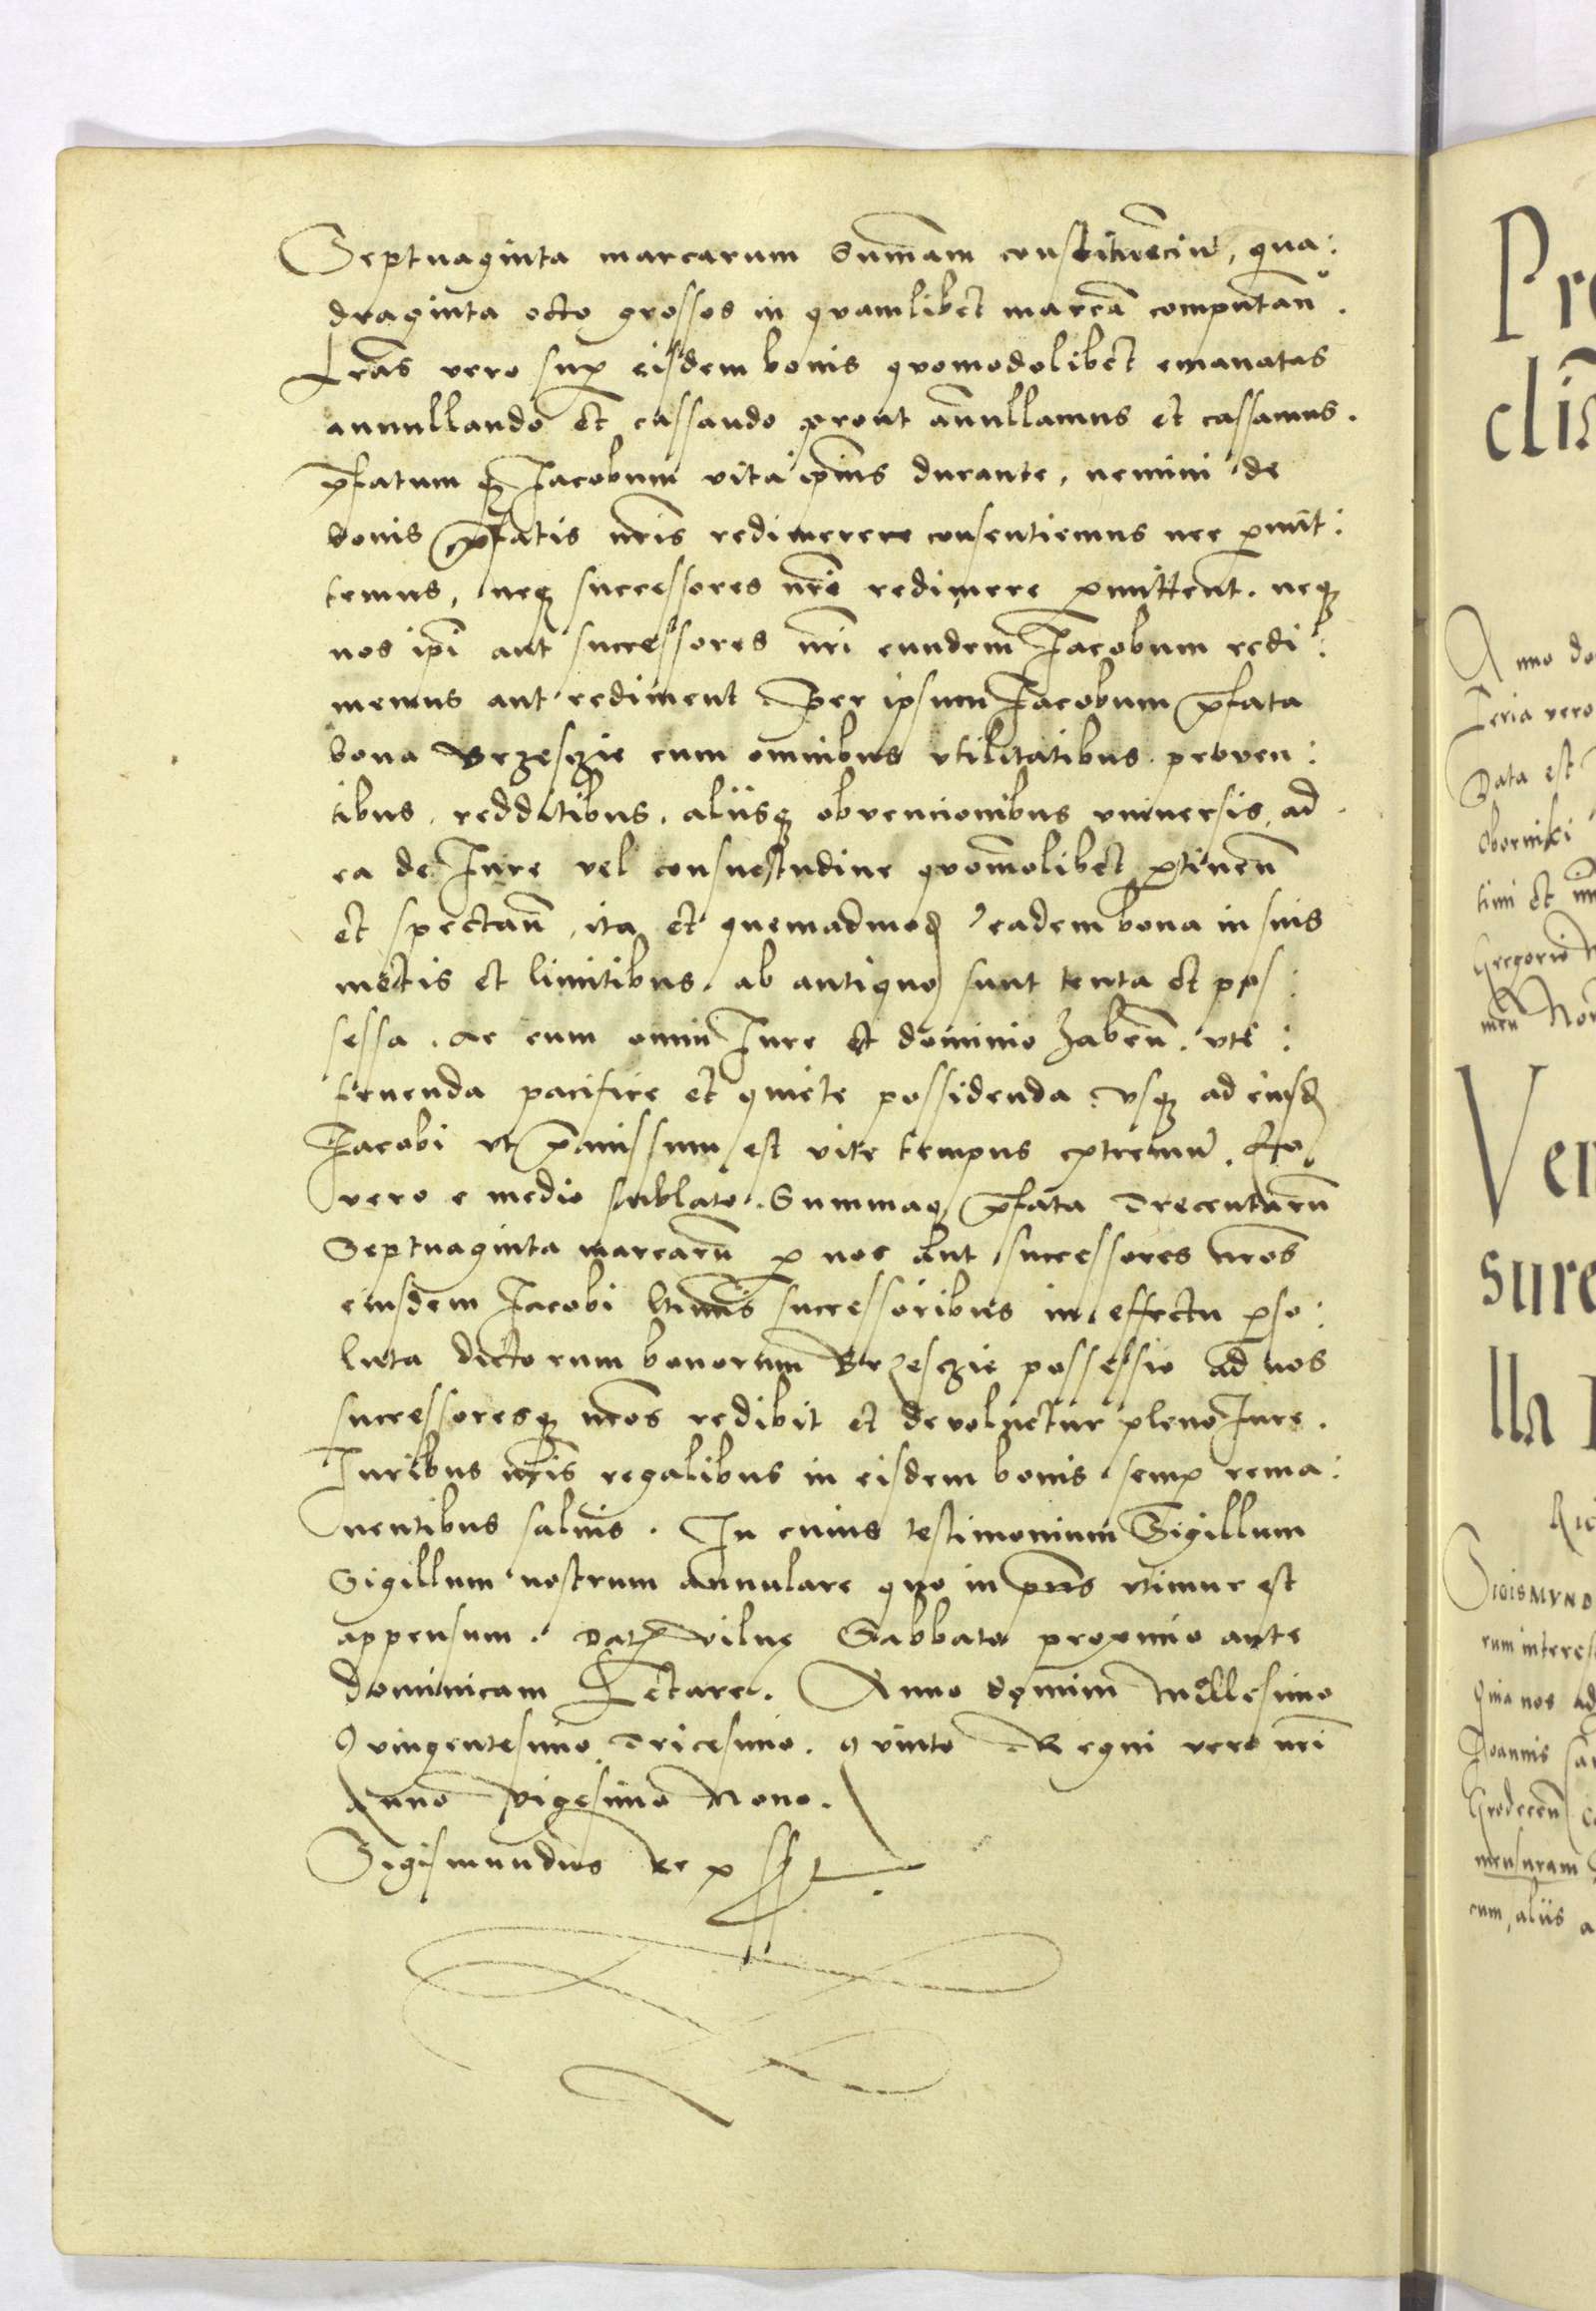 Septuaginta marcarum summam constituenciũ, qua:
draginta octo grossos in quamlibet marcã computan̄.
Lr̃as vero sup eisdem bonis quomodolibet emanatas
annullando et cassando prout añullamus et cassamus.
p̃fatum q̃ Jacobum vita ip̃ius durante, nemini de
bonis p̃fatis nr̃is redimerere consentiemus nec pmit:
temus, neq̃ successores nr̃i redimere pmittent. neq̃
nos ip̃i aut successores nr̃i eundem Jacobum redi:
memus aut rediment. Per ipsum Jacobum p̃fata
bona Brzesczie cum omnibus vtilitatibus. proven:
tibus. redditibus. aliisq̃ obvencionibus vniuersis, ad
ea de Jure vel consuestudine quom̃olibet ptinen̄
et spectan̄, ita et quemadmod̃ eadem bona in suis
metis et limitibus. ab antiquo sunt tenta et pos:
sessa. ac cum omni Jure et dominio haben̄. vte:
tenenda pacifice et quiete possidenda. vsq̃ ad eiusd̃
Jacobi vt p̃missum est vite tempus extremũ.
vero e medio sublato. Summaq̃ p̃fata Trecentarũ
Septuaginta marcarũ p nos aut successores nr̃os
eiusdem Jacobi ltimis successoribus in effectu pso:
luta dictorum bonorum Brzesczie possessio ad nos
successoresq̃ nr̃os redibit et devoluetur pleno Jure.
Juribus nr̃is regalibus in eisdem bonis semp rema:
nentibus saluis. In cuius testimonium Sigillum
Sigillum nostrum annulare quo in pñs vtimur est
appensum. Dat̃ Vilnę Sabbato proximo ante
dominicam Letare. Anno domini Millesimo
Quingentesimo Tricesimo. quinto Regni vero nr̃i
Anno vigesimo Nono.
Sigismundus Rex sst.
Pr
cli
Anno do
Feria vero
Data est
Oborniki
timi et
Gregorio
men Non
Ver
sure
lla
Ric
SIGISMVND
rum interes
Quia nos ad
Joannis
Grodecen̄
mensuram
cum, aliis a